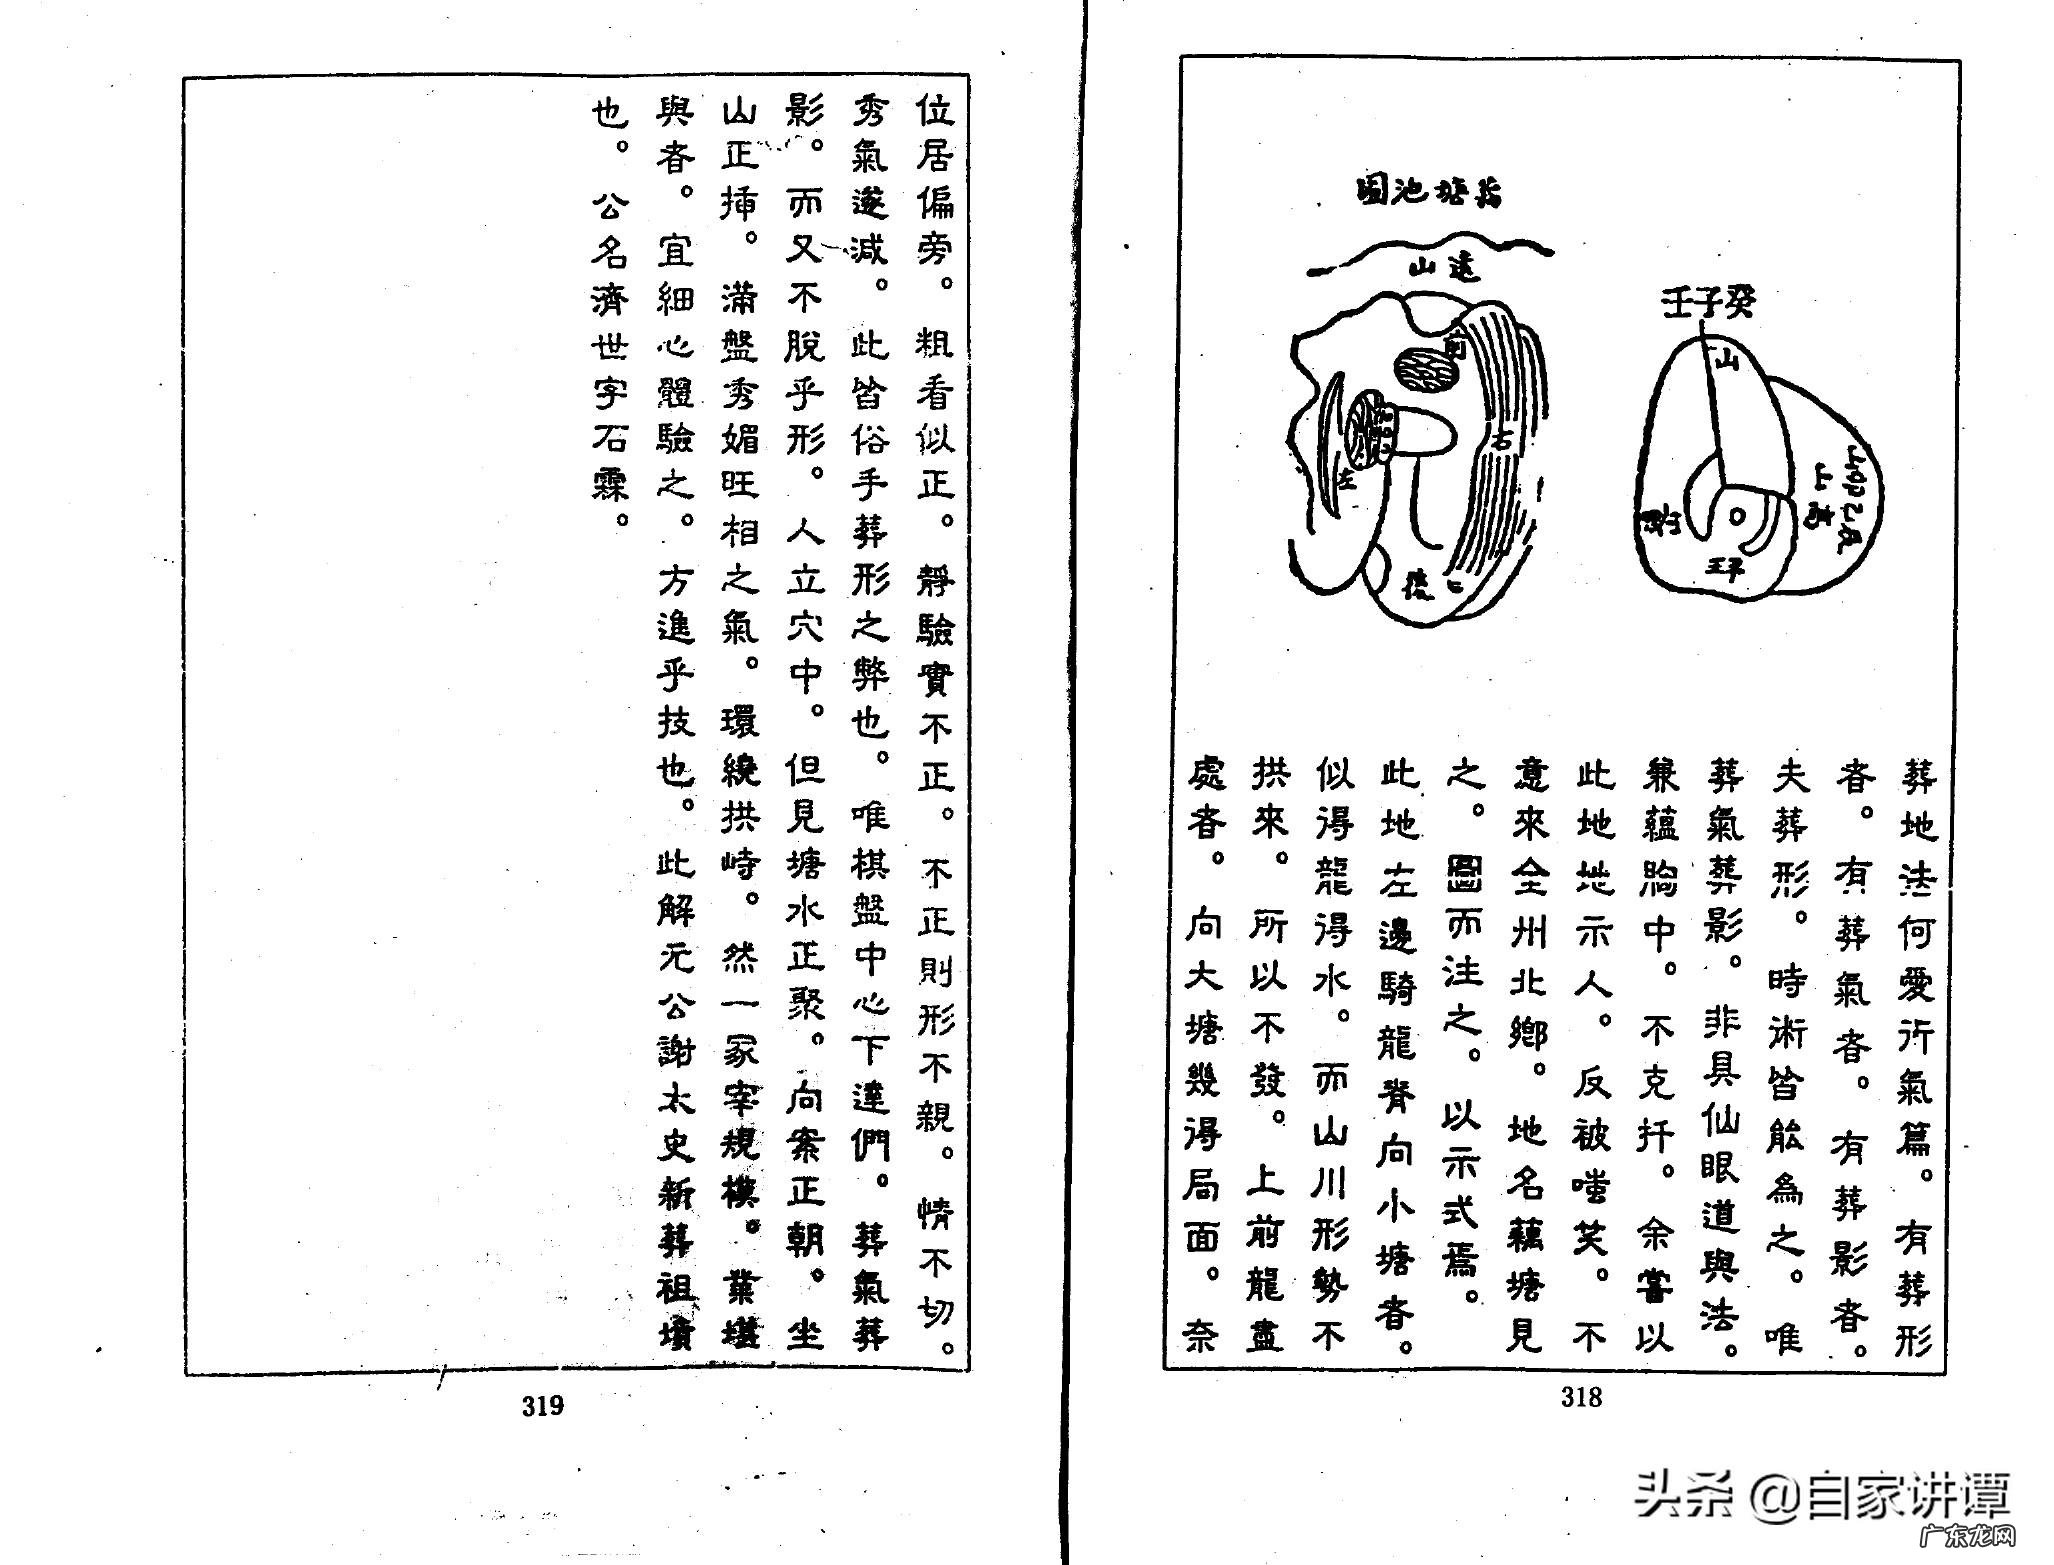 壬子癸
山
山高
王子
藕塘池圖
遠山
右
左
葬地法何愛沂氣篇。有葬形
者。有葬氣者。有葬影者。
夫葬形。時術皆能為之。唯
葬氣葬影。非具仙眼道與法。
兼蘊胸中。不克扦。余嘗以
此地地示人。反被嗤笑。不
意來全州北鄉。地名藕塘見
之。圖而注之。以示式焉。
此地左邊騎龍脊向小塘者。
似得龍得水。而山川形勢不
拱來。所以不發。上前龍盡
處者。向大塘幾得局面。奈
318
位居偏旁。粗看似正。靜驗實不正。不正則形不親。情不切。
秀氣遂減。此皆俗手葬形之弊也。唯棋盤中心下達們。葬氣葬
影。而又不脫乎形。人立穴中。但見塘水正聚。向案正朝。坐
山正插。滿盤秀媚旺相之氣。環繞拱峙。然一冢宰規模。業堪
與者。宜細心體驗之。方進乎技也。此解元公謝太史新葬祖墳
也。公名濟世字石霖。
319
头条 @自家讲谭
广东龙网